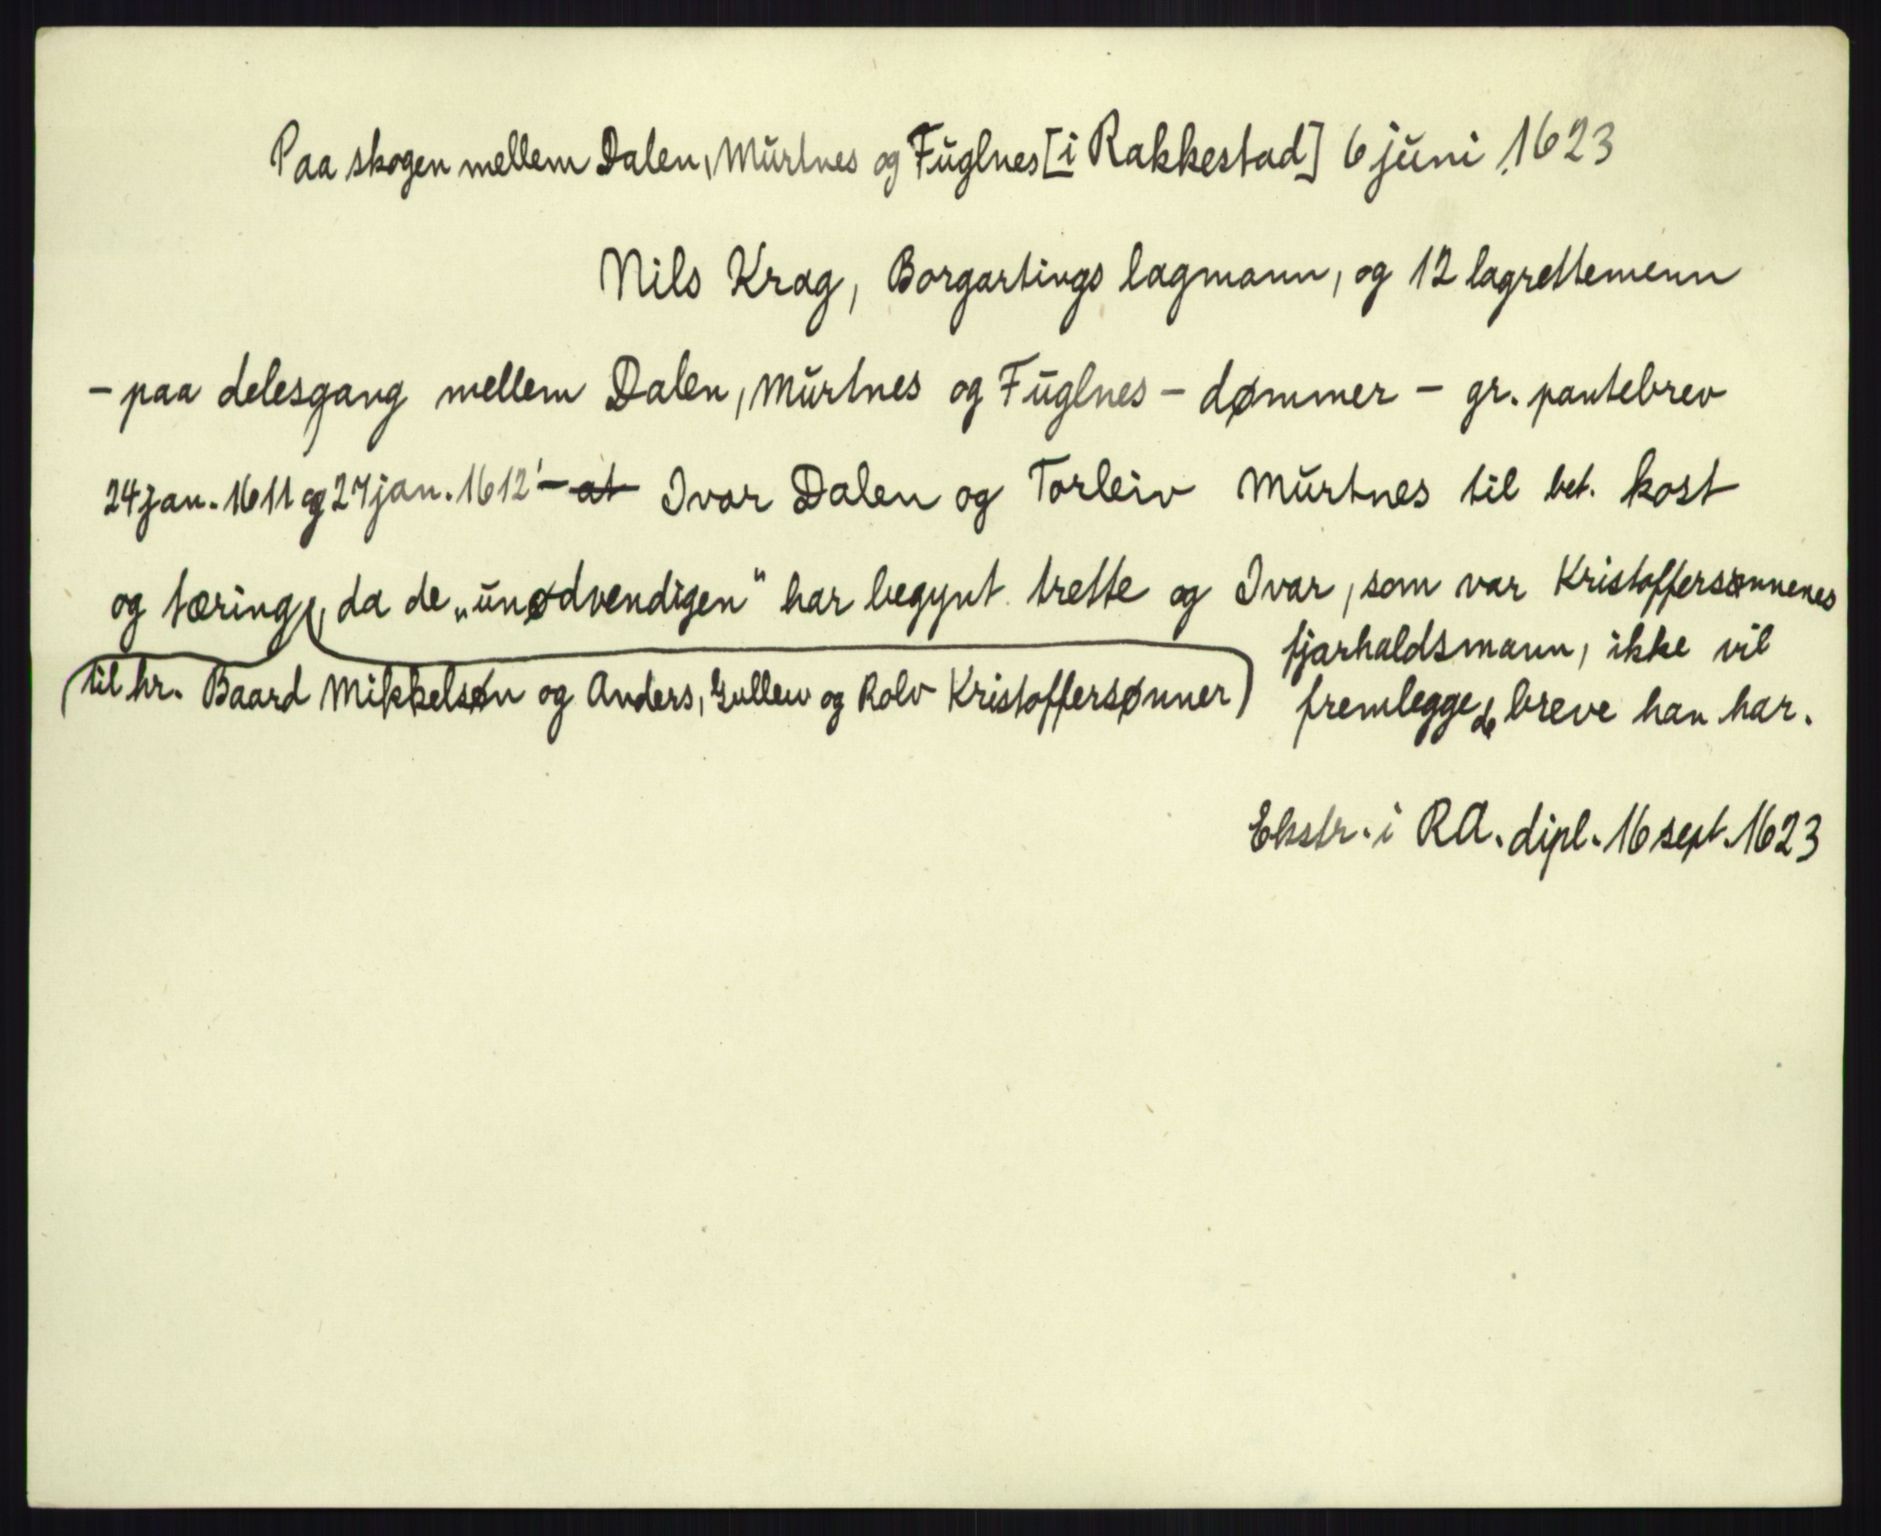 Paa skogen mellem Dalen, Murtnes og Fuglnes [i Rakkestad] 6 juni 1623
Nils Krag, Borgartings lagmann, og 12 lagrettemenn
– paa delesgang mellem Dalen, Murtnes og Fuglnes – dømmer – gr. pantebrev
24 jan. 1611 og 27 jan. 1612 – at Ivar Dalen og Torleiv Murtnes til bet. kost
og tæring, da de „unødvendigen" har begynt trette og Ivar, som var Kristoffersønnenes
fjarhaldsmann, ikke vil
til hr. Baard Mikkelsøn og Anders, Gulleiv og Rolv Kristoffersønner
fremlegge de breve han har.
Ekstr. i RA. dipl. 16 sept. 1623